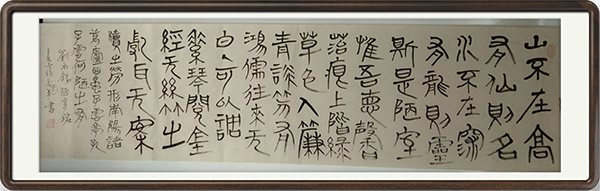 山不在高
有仙則名
水不在深
有龍則靈
斯是陋室
惟吾德馨
苔痕上階緑
草色入簾
青談笑有
鴻儒往來无
白丁可以調
素琴閱金
經无絲竹之
亂耳无案
牘之勞形南陽諸
葛廬西蜀子雲亭孔
子云何陋之有
劉禹錫陋室銘
書